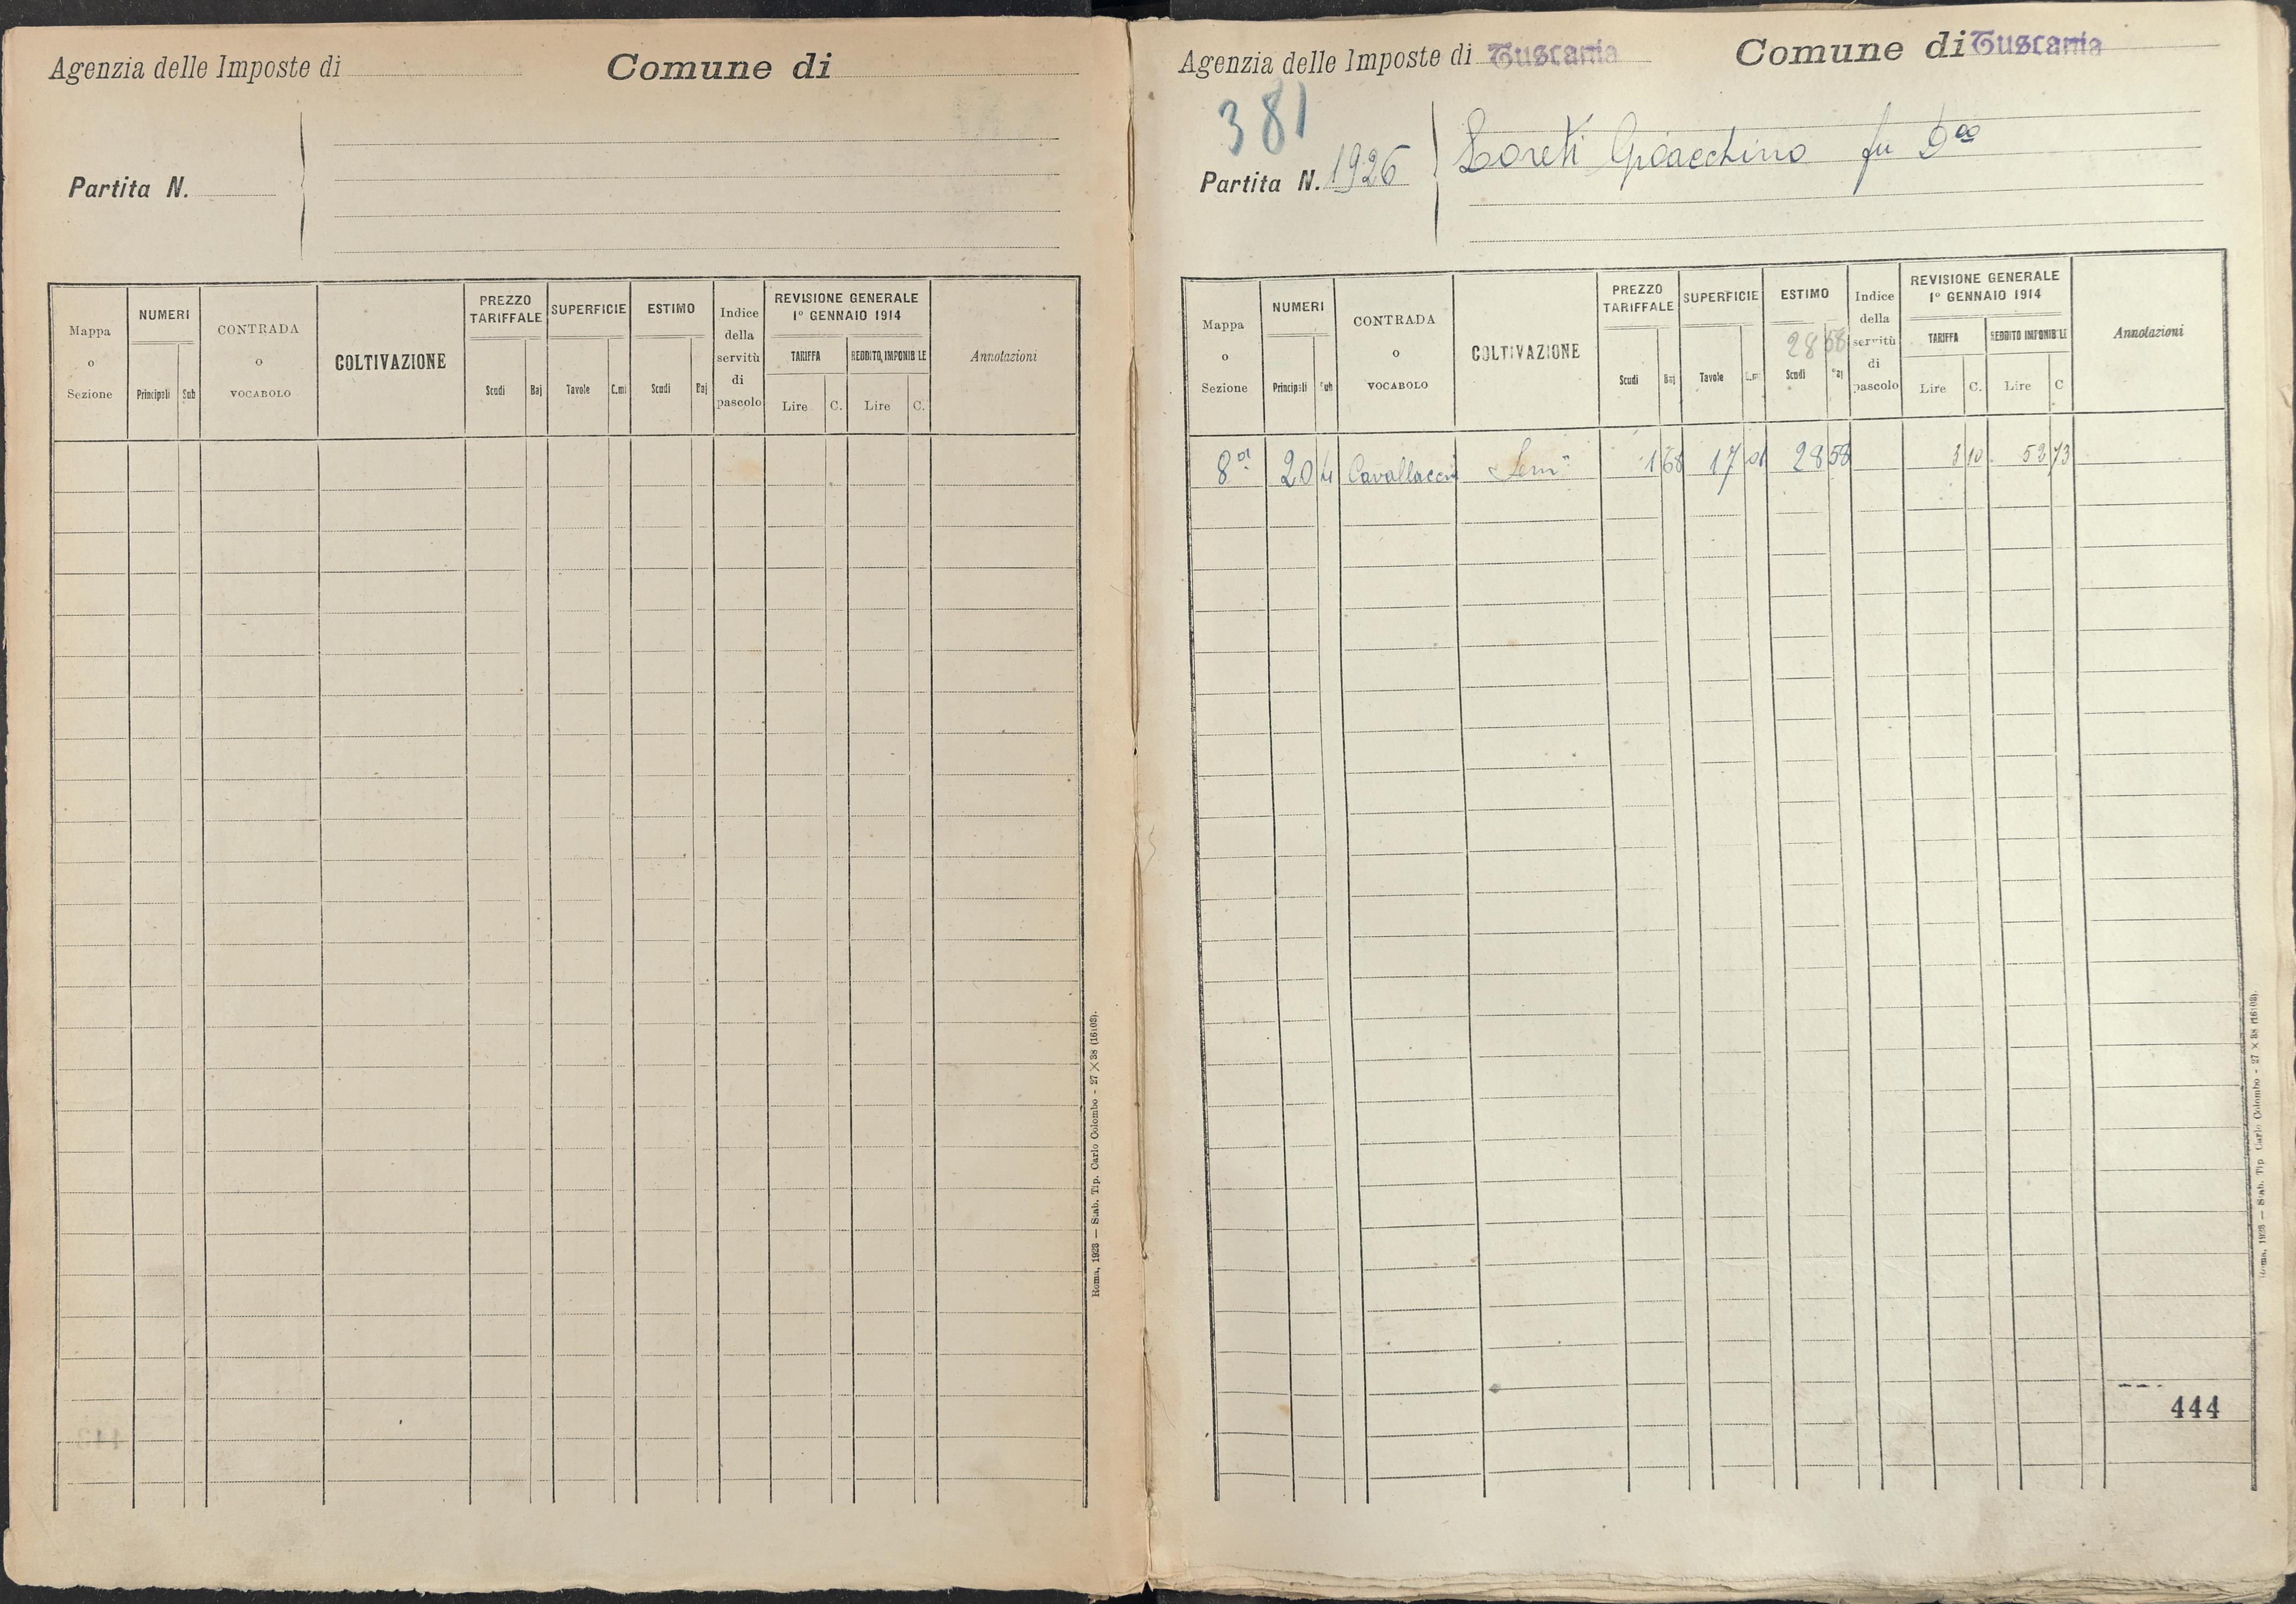 Agenzia delle Imposte di
Comune di
Partita N.
Mappa o Sezione
NUMERI
Principali Sub
CONTRADA o VOCABOLO
COLTIVAZIONE
PREZZO TARIFFALE
Scudi Baj
SUPERFICIE
Tavole C.mi
ESTIMO
Scudi Baj
Indice della servitù di pascolo
REVISIONE GENERALE
1° GENNAIO 1914
TARIFFA
Lire C.
REDDITO IMPONIBILE
Lire C.
Annotazioni
Roma, 1923 — Stab. Tip. Carlo Colombo - 27 × 38 (16103).
Agenzia delle Imposte di Tuscania
Comune di Tuscania
381
Partita N. 1926
Loreti Gioacchino fu D.co
Mappa o Sezione
NUMERI
Principali Sub
CONTRADA o VOCABOLO
COLTIVAZIONE
PREZZO TARIFFALE
Scudi Baj
SUPERFICIE
Tavole C.mi
ESTIMO
28 58
Scudi Baj
Indice della servitù di pascolo
REVISIONE GENERALE
1° GENNAIO 1914
TARIFFA
Lire C.
REDDITO IMPONIBILE
Lire C
Annotazioni
8a 20 4 Sem° 1 68 17 01 28 58 3 10 73
444
Roma, 1923 — Stab. Tip. Carlo Colombo - 27 × 38 (16103).